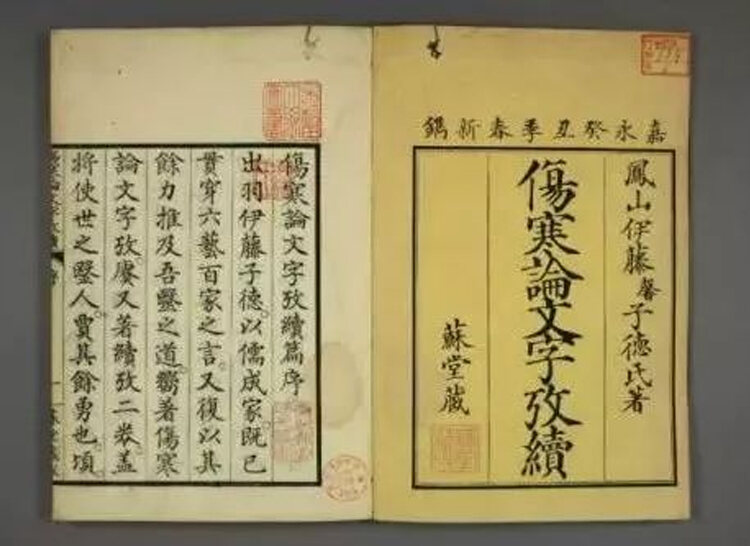 嘉永癸丑季春新鐫
鳳山伊藤馨子德氏著
傷寒論文字攷續
蘇堂藏
傷寒論文字攷續篇序
出羽伊藤子德以儒成家既已
貫穿六藝百家之言又復以其
餘力推及吾毉之道嚮著傷寒
論文字攷屢又著續攷二卷蓋
將使世之毉人賈其餘勇也頃